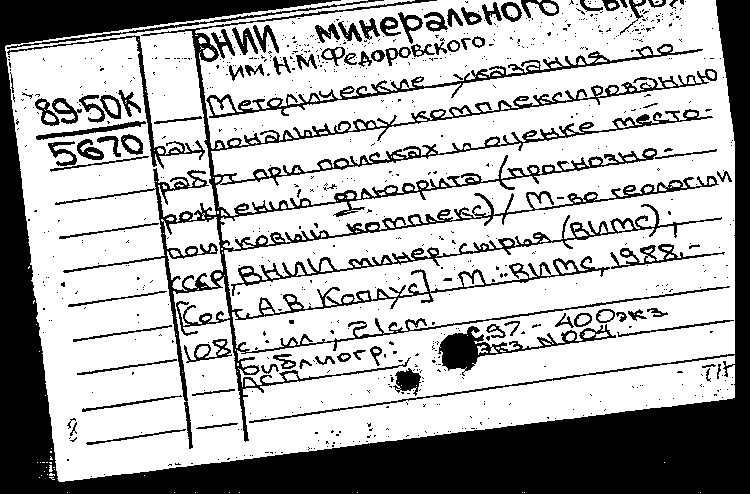 ВНИИ минерального сырья
им. Н.М. Федоровского.
89-50К
5670
Методические указания по
рациональному комплексированию
работ при поисках и оценке место-
рождений флюорита (прогнозно-
поисковый комплекс) / М-во геологии
СССР, ВНИИ минер. сырья (ВИМС);
[Сост. А.В. Коплус]. - М.: ВИМС, 1988. -
108 с.: ил.; 21 см.
Библиогр.: с.97. - 400 экз
ДСП экз. N 004.
8